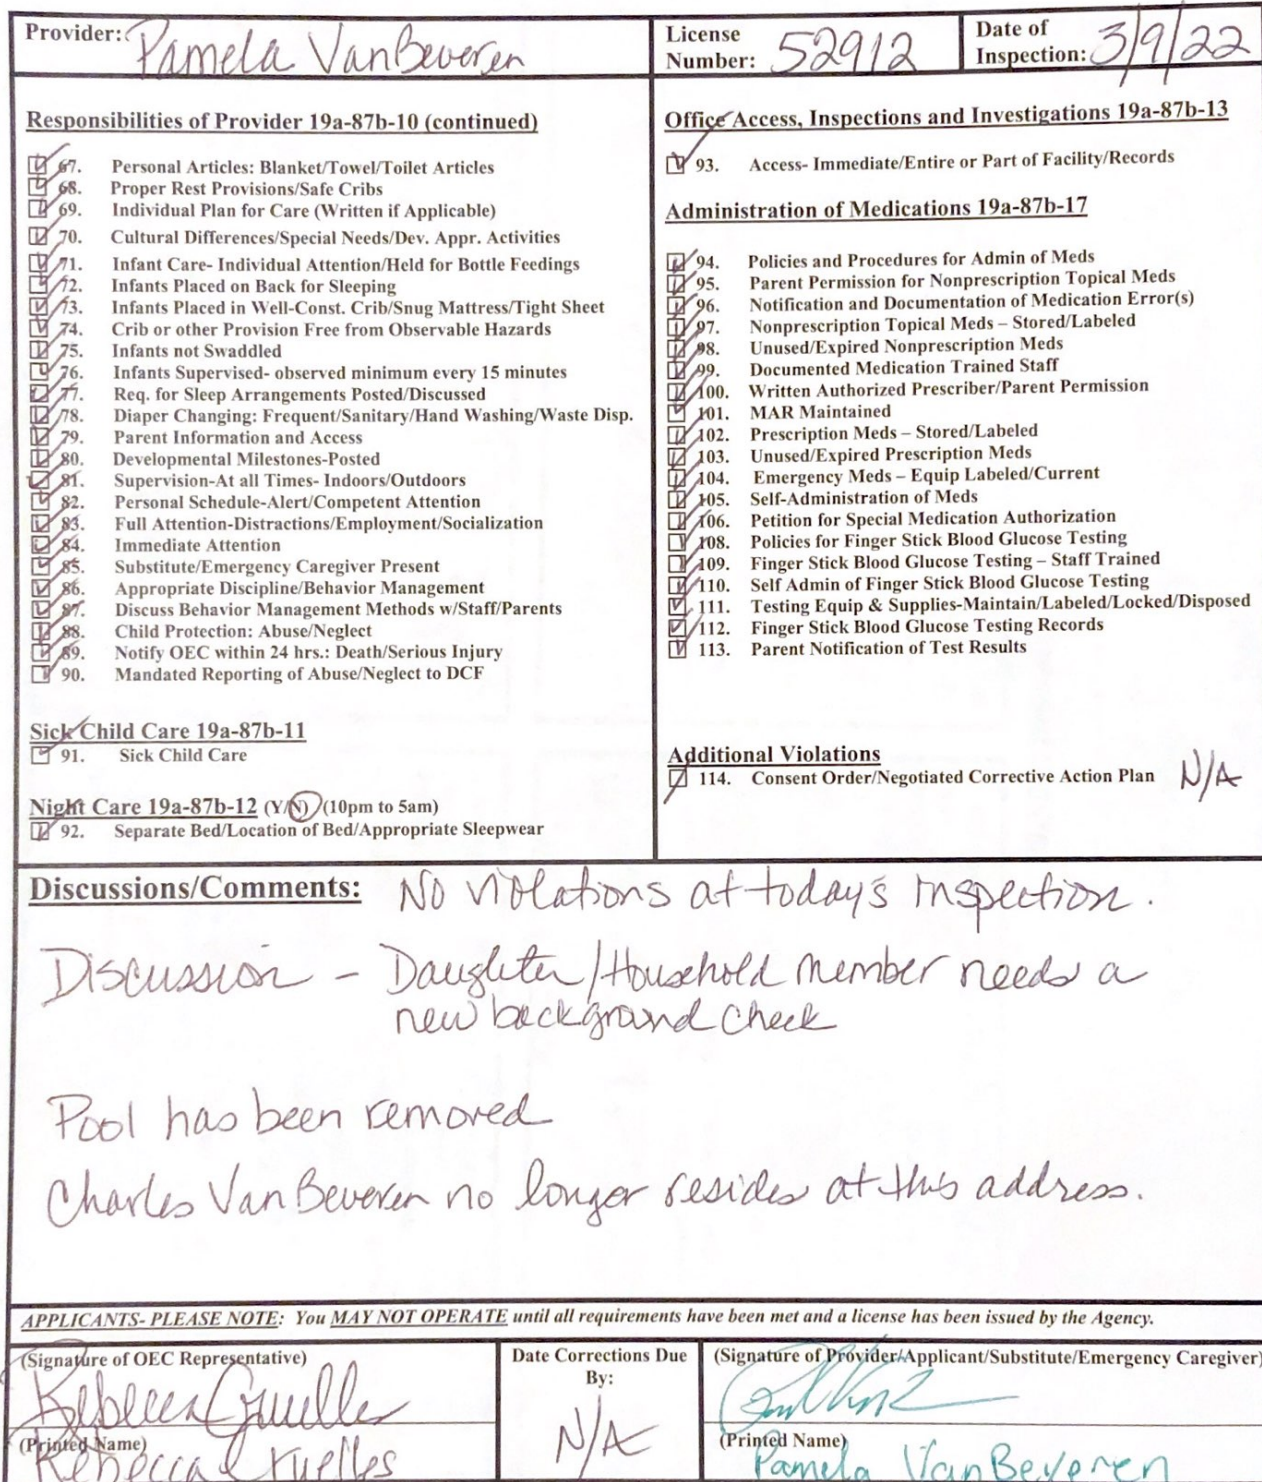 Provider: Pamela VanBeveren
License Number: 52912
Date of Inspection: 3/9/22
Responsibilities of Provider 19a-87b-10 (continued)
67. Personal Articles: Blanket/Towel/Toilet Articles
68. Proper Rest Provisions/Safe Cribs
69. Individual Plan for Care (Written if Applicable)
70. Cultural Differences/Special Needs/Dev. Appr. Activities
71. Infant Care- Individual Attention/Held for Bottle Feedings
72. Infants Placed on Back for Sleeping
73. Infants Placed in Well-Const. Crib/Snug Mattress/Tight Sheet
74. Crib or other Provision Free from Observable Hazards
75. Infants not Swaddled
76. Infants Supervised- observed minimum every 15 minutes
77. Req. for Sleep Arrangements Posted/Discussed
78. Diaper Changing: Frequent/Sanitary/Hand Washing/Waste Disp.
79. Parent Information and Access
80. Developmental Milestones-Posted
81. Supervision-At all Times- Indoors/Outdoors
82. Personal Schedule-Alert/Competent Attention
83. Full Attention-Distractions/Employment/Socialization
84. Immediate Attention
85. Substitute/Emergency Caregiver Present
86. Appropriate Discipline/Behavior Management
87. Discuss Behavior Management Methods w/Staff/Parents
88. Child Protection: Abuse/Neglect
89. Notify OEC within 24 hrs.: Death/Serious Injury
90. Mandated Reporting of Abuse/Neglect to DCF
Sick Child Care 19a-87b-11
91. Sick Child Care
Night Care 19a-87b-12 (Y/N) (10pm to 5am)
92. Separate Bed/Location of Bed/Appropriate Sleepwear
Office Access, Inspections and Investigations 19a-87b-13
93. Access- Immediate/Entire or Part of Facility/Records
Administration of Medications 19a-87b-17
94. Policies and Procedures for Admin of Meds
95. Parent Permission for Nonprescription Topical Meds
96. Notification and Documentation of Medication Error(s)
97. Nonprescription Topical Meds – Stored/Labeled
98. Unused/Expired Nonprescription Meds
99. Documented Medication Trained Staff
100. Written Authorized Prescriber/Parent Permission
101. MAR Maintained
102. Prescription Meds – Stored/Labeled
103. Unused/Expired Prescription Meds
104. Emergency Meds – Equip Labeled/Current
105. Self-Administration of Meds
106. Petition for Special Medication Authorization
108. Policies for Finger Stick Blood Glucose Testing
109. Finger Stick Blood Glucose Testing – Staff Trained
110. Self Admin of Finger Stick Blood Glucose Testing
111. Testing Equip & Supplies-Maintain/Labeled/Locked/Disposed
112. Finger Stick Blood Glucose Testing Records
113. Parent Notification of Test Results
Additional Violations
114. Consent Order/Negotiated Corrective Action Plan N/A
Discussions/Comments: No violations at today's inspection.
Discussion - Daughter/Household member needs a
new background check
Pool has been removed
Charles VanBeveren no longer resides at this address.
APPLICANTS- PLEASE NOTE: You MAY NOT OPERATE until all requirements have been met and a license has been issued by the Agency.
(Signature of OEC Representative)
(Printed Name)
Rebecca
Date Corrections Due
By:
N/A
(Signature of Provider/Applicant/Substitute/Emergency Caregiver)
(Printed Name)
Pamela VanBeveren